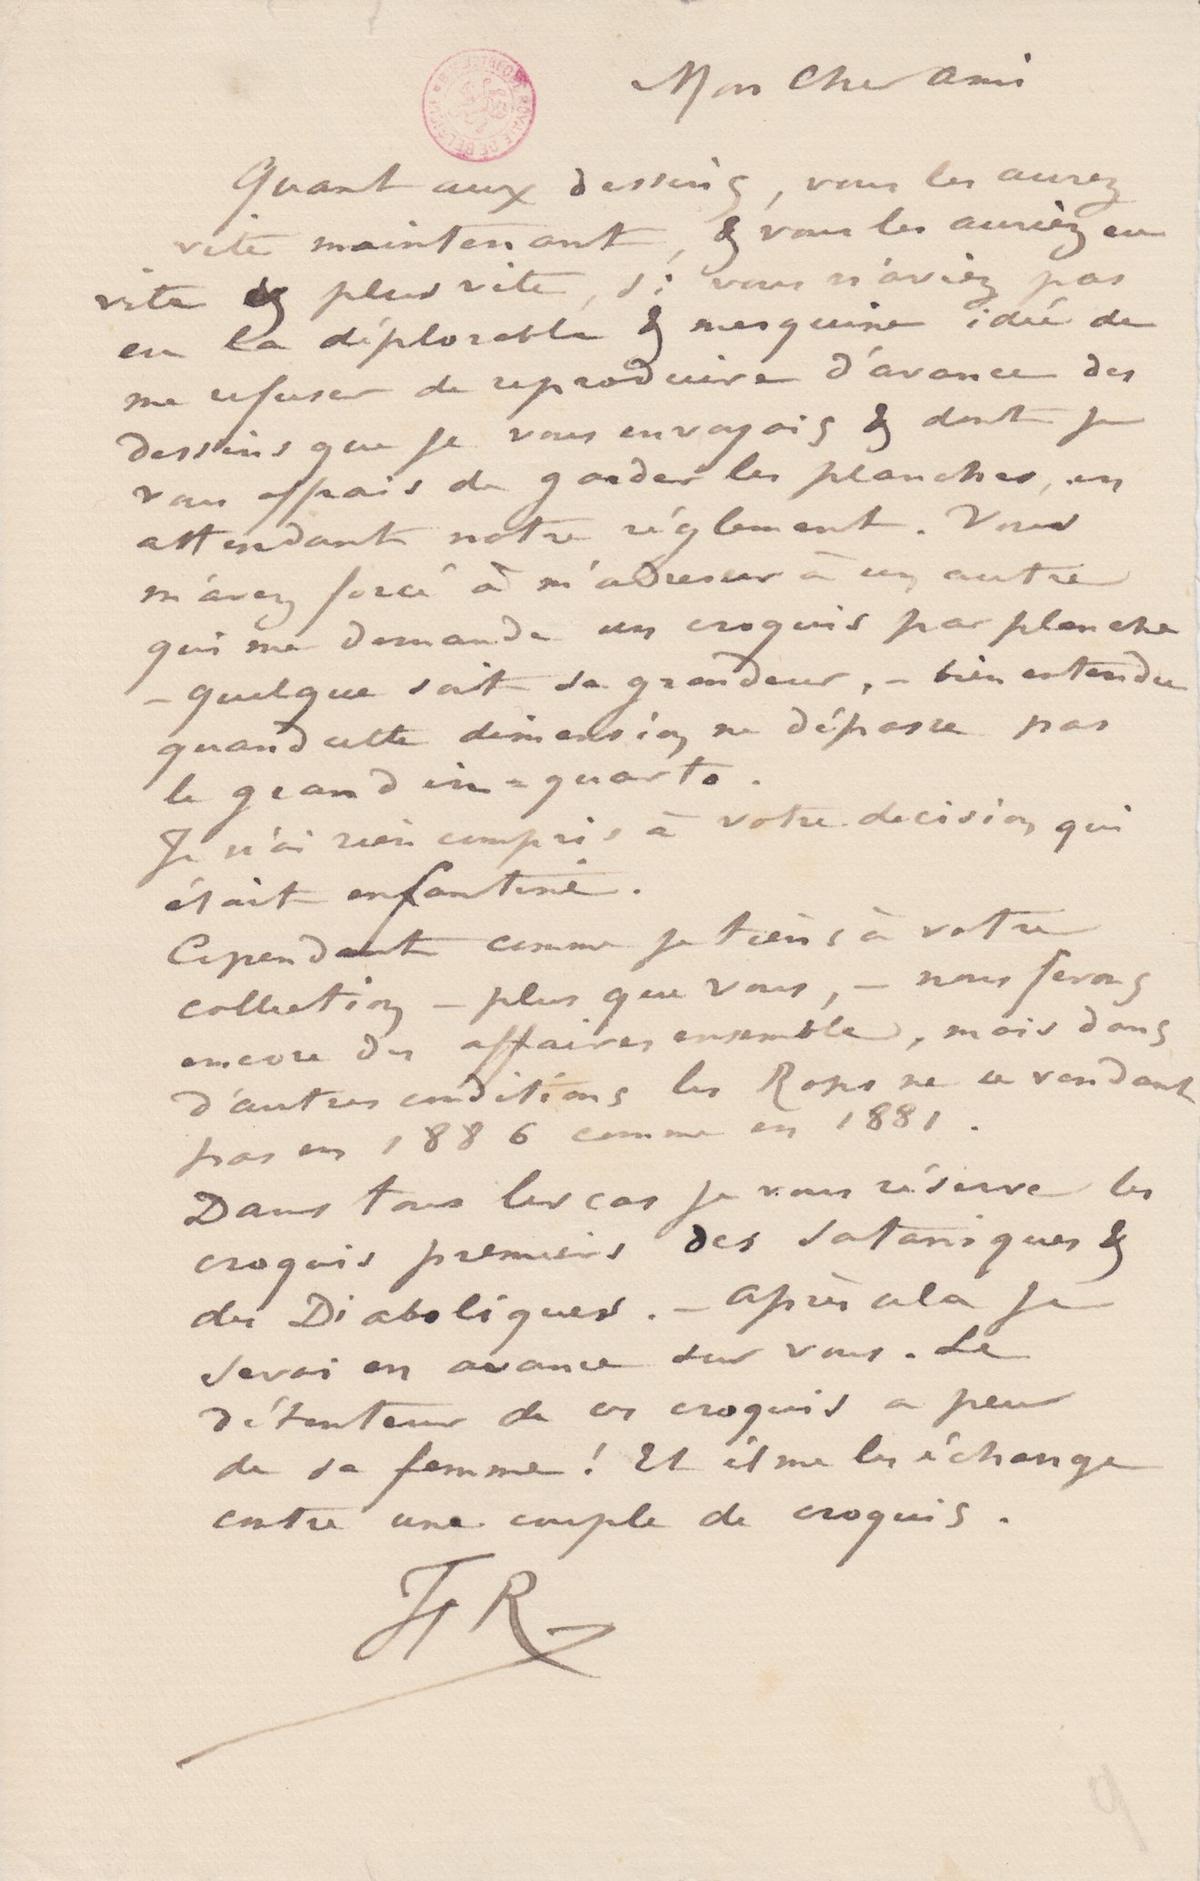 Mon Cher Ami
BIBLIOTHÈQUE ROYALE DE BELGIQUE
Quant aux dessins, vous les aurez
vite maintenant, & vous les auriez eu
vite & plus vite, si vous n'aviez pas
eu la déplorable & mesquine idée de
me refuser de reproduire d'avance des
dessins que je vous envoyais & dont je
vous offrais de garder les planches, en
attendant notre réglement. Vous
m'avez forcé à m'adresser à un autre
qui me demande un croquis par planche
– quelque soit sa grandeur, – bien entendu
quand cette dimension ne dépasse pas
le grand in-quarto.
Je n'ai rien compris à votre decision qui
était enfantine.
Cependant comme je tiens à votre
collection – plus que vous, – nous ferons
encore des affaires ensemble, mais dans
d'autres conditions les Rops ne se vendant
pas en 1886 comme en 1881.
Dans tous les cas je vous réserve les
croquis premiers des Sataniques &
des Diaboliques. – Après cela je
serai en avance sur vous. Le
détenteur de ces croquis a peur
de sa femme! Et il me les échange
contre une couple de croquis.
FR
9